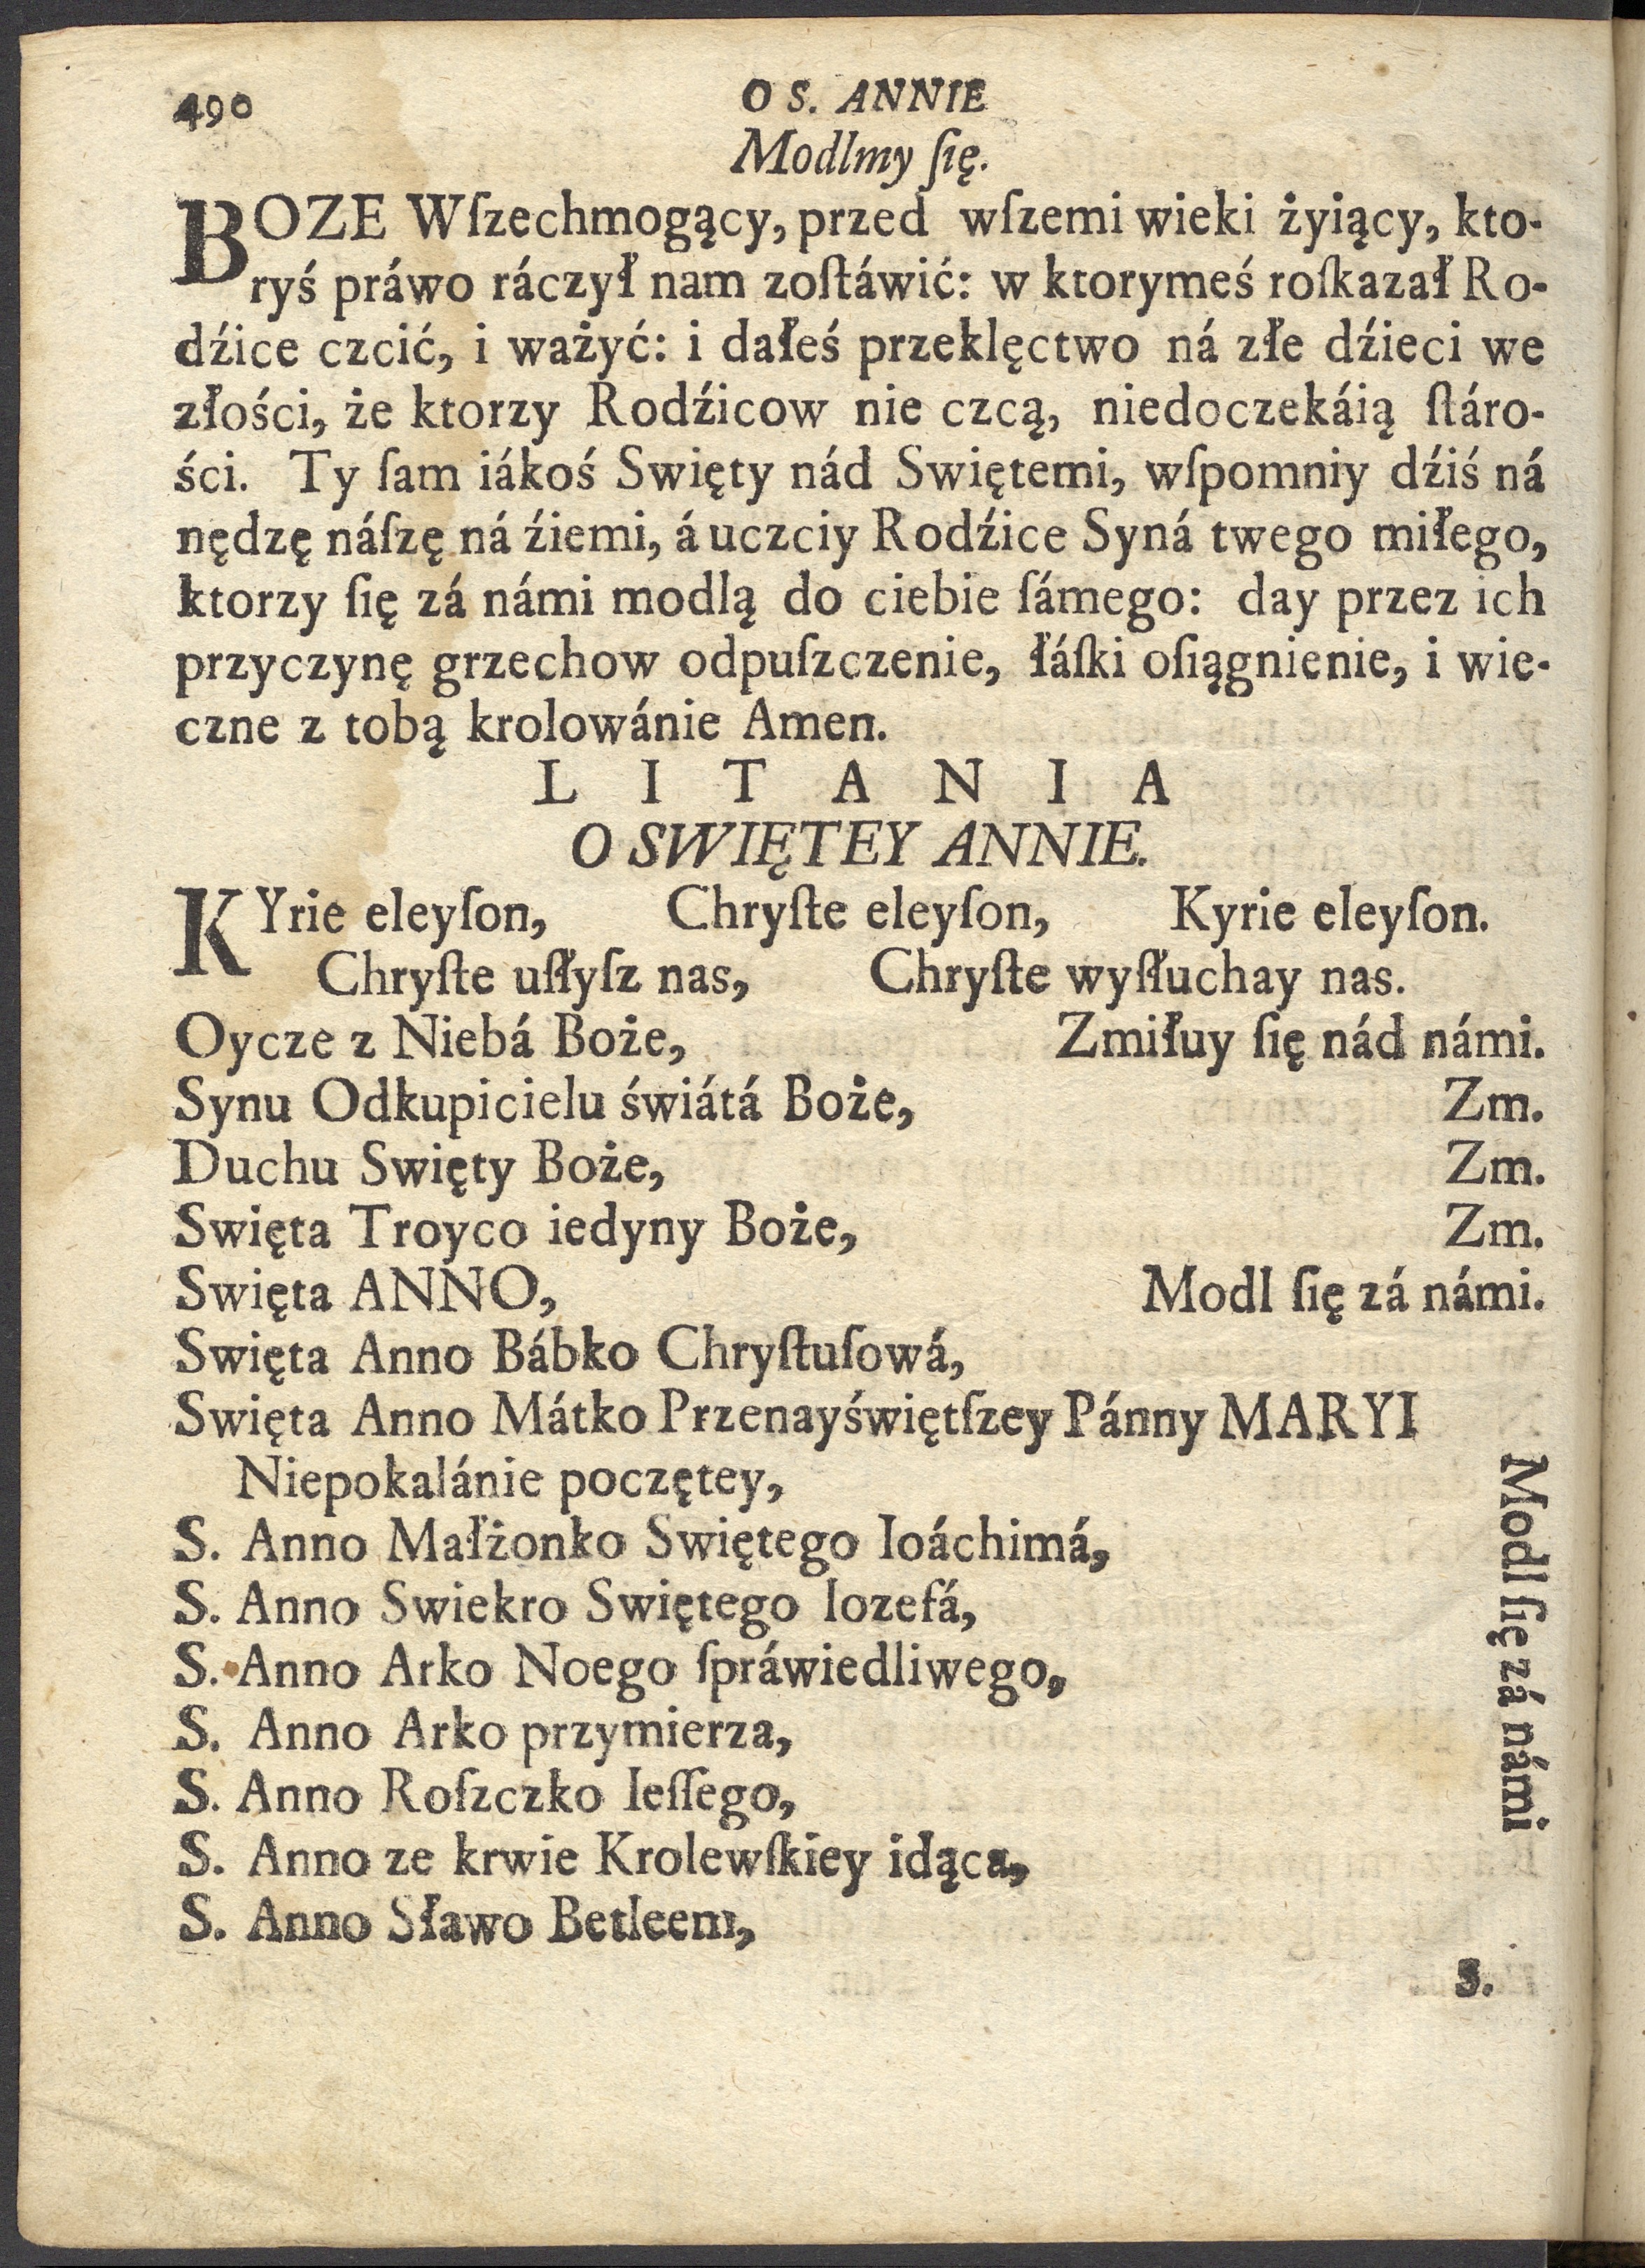 490
O S. ANNIE
Modlmy ſię.
BOZE Wſzechmogący, przed wſzemi wieki żyiący, kto-
ryś práwo ráczył nam zoſtáwić: w ktorymeś roſkazał Ro-
dźice czcić, i ważyć: i dałeś przeklęctwo ná złe dźieci we
złości, że ktorzy Rodźicow nie czcą, niedoczekáią ſtáro-
ści. Ty ſam iákoś Swięty nád Swiętemi, wſpomniy dźiś ná
nędzę náſzę ná źiemi, á uczciy Rodźice Syná twego miłego,
ktorzy ſię zá námi modlą do ciebie ſámego: day przez ich
przyczynę grzechow odpuſzczenie, łáſki oſiągnienie, i wie-
czne z tobą krolowánie Amen.
L I T A N I A
O SWIĘTEY ANNIE.
KYrie eleyſon, Chryſte eleyſon, Kyrie eleyſon.
Chryſte uſłyſz nas, Chryſte wyſłuchay nas.
Oycze z Niebá Boże, Zmiłuy ſię nád námi.
Synu Odkupicielu świátá Boże, Zm.
Duchu Swięty Boże, Zm.
Swięta Troyco iedyny Boże, Zm.
Swięta ANNO, Modl ſię zá námi.
Swięta Anno Bábko Chryſtuſowá,
Swięta Anno Mátko Przenayświętſzey Pánny MARYI
Niepokalánie poczętey,
S. Anno Małżonko Swiętego Ioáchimá,
S. Anno Swiekro Swiętego Iozefá,
S. Anno Arko Noego ſpráwiedliwego,
S. Anno Arko przymierza,
S. Anno Roſzczko Ieſſego,
S. Anno ze krwie Krolewſkiey idąca,
S. Anno Sławo Betleem,
Modl ſię zá námi
S.